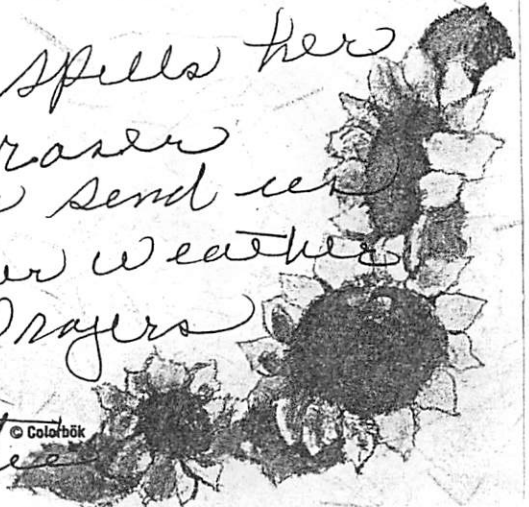 spells her
raser
send us
weather
Prayers
© Colorbök